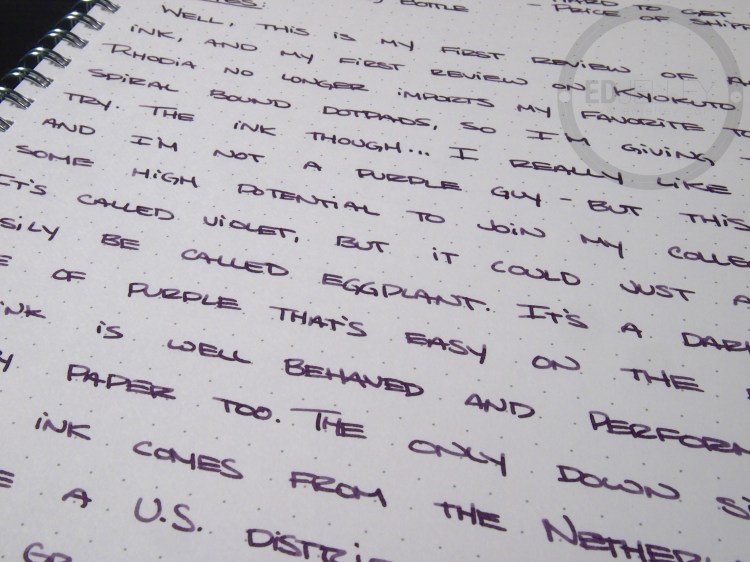 BOTTLE - HARD TO GET.
- PRICE OF
WELL, THIS IS MY FIRST REVIEW OF
INK, AND MY FIRST REVIEW ON KYOKUTO
RHODIA NO LONGER IMPORTS MY FAVORITE
SPIRAL BOUND DOTPADS, SO I'M GIVING
TRY. THE INK THOUGH... I REALLY LIKE
AND I'M NOT A PURPLE GUY - BUT THIS
SOME HIGH POTENTIAL TO JOIN MY COLLE
IT'S CALLED VIOLET, BUT IT COULD JUST A
SILY BE CALLED EGGPLANT. IT'S A DAR
OF PURPLE THAT'S EASY ON THE
INK IS WELL BEHAVED AND PERFORM
PAPER TOO. THE ONLY DOWN SI
INK COMES FROM THE NETHER
A U.S. DISTRI
ED JELLEY